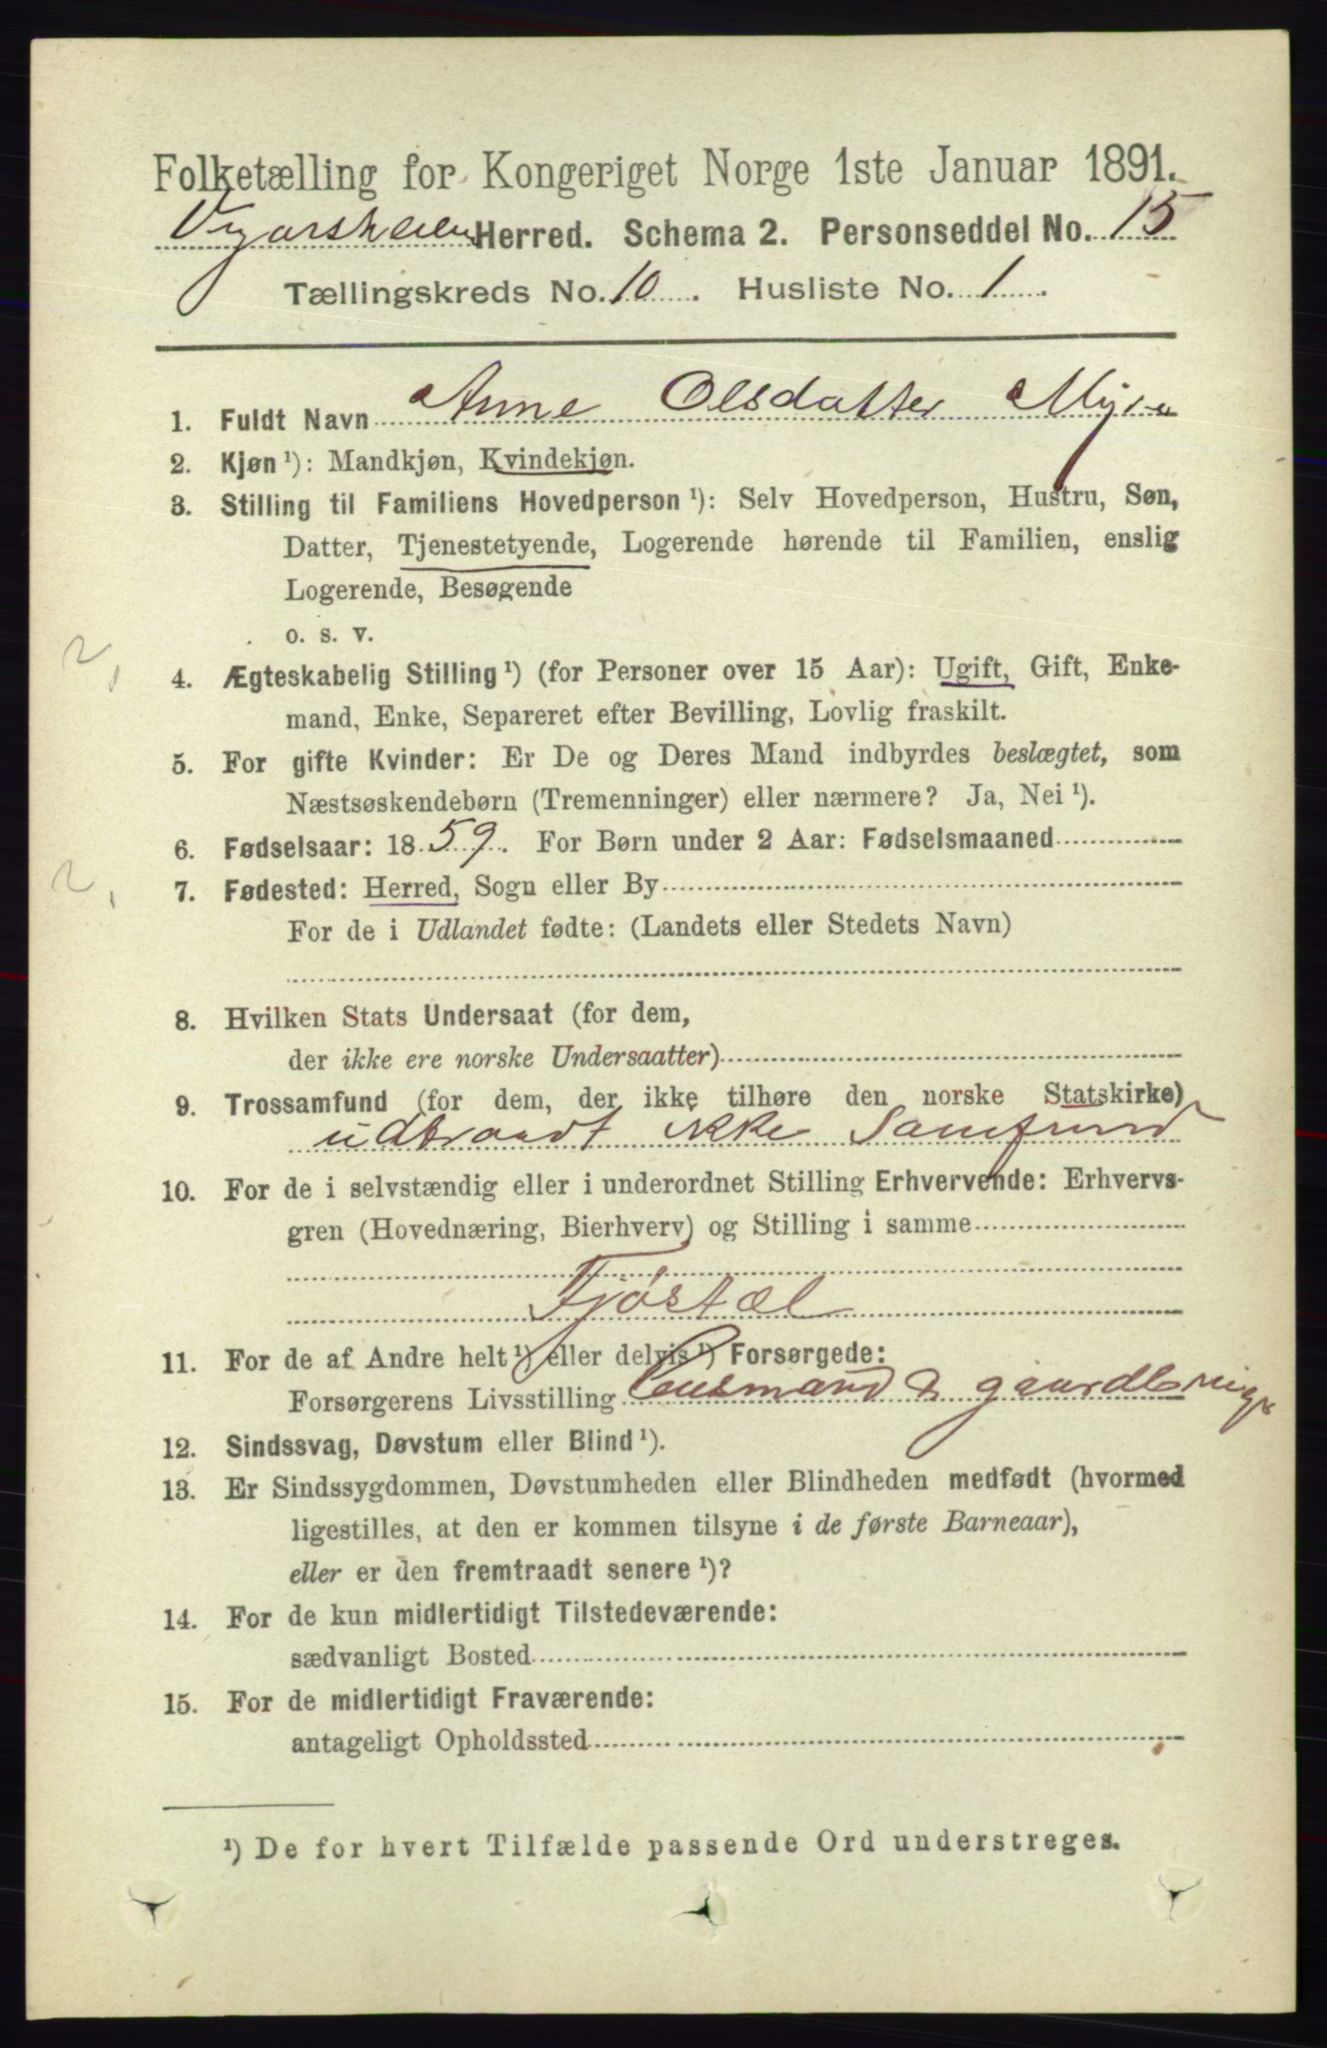 Folketælling for Kongeriget Norge 1ste Januar 1891.
Vegarsheien Herred. Schema 2. Personseddel No. 15
Tællingskreds No. 10. Husliste No. 1.
1. Fuldt Navn Anne Olsdatter Myra
2. Kjøn¹): Mandkjøn, Kvindekjøn.
3. Stilling til Familiens Hovedperson¹): Selv Hovedperson, Hustru, Søn,
Datter, Tjenestetyende, Logerende hørende til Familien, enslig
Logerende, Besøgende
o. s. v.
2,
4. Ægteskabelig Stilling¹) (for Personer over 15 Aar): Ugift, Gift, Enke-
mand, Enke, Separeret efter Bevilling, Lovlig fraskilt.
5. For gifte Kvinder: Er De og Deres Mand indbyrdes beslægtet, som
Næstsøskendebørn (Tremenninger) eller nærmere? Ja, Nei¹).
6. Fødselsaar: 1859. For Børn under 2 Aar: Fødselsmaaned
2,
7. Fødested: Herred, Sogn eller By
For de i Udlandet fødte: (Landets eller Stedets Navn)
8. Hvilken Stats Undersaat (for dem,
der ikke ere norske Undersaatter)
9. Trossamfund (for dem, der ikke tilhøre den norske Statskirke)
udtraadt ikke Samfund
10. For de i selvstændig eller i underordnet Stilling Erhvervende: Erhvervs-
gren (Hovednæring, Bierhverv) og Stilling i samme
Fjøstæl
11. For de af Andre helt¹) eller delvis¹) Forsørgede:
Forsørgerens Livsstilling Lensmand & gaardbruger
12. Sindssvag, Døvstum eller Blind¹).
13. Er Sindssygdommen, Døvstumheden eller Blindheden medfødt (hvormed
ligestilles, at den er kommen tilsyne i de første Barneaar),
eller er den fremtraadt senere¹)?
14. For de kun midlertidigt Tilstedeværende:
sædvanligt Bosted
15. For de midlertidigt Fraværende:
antageligt Opholdssted
¹) De for hvert Tilfælde passende Ord understreges.